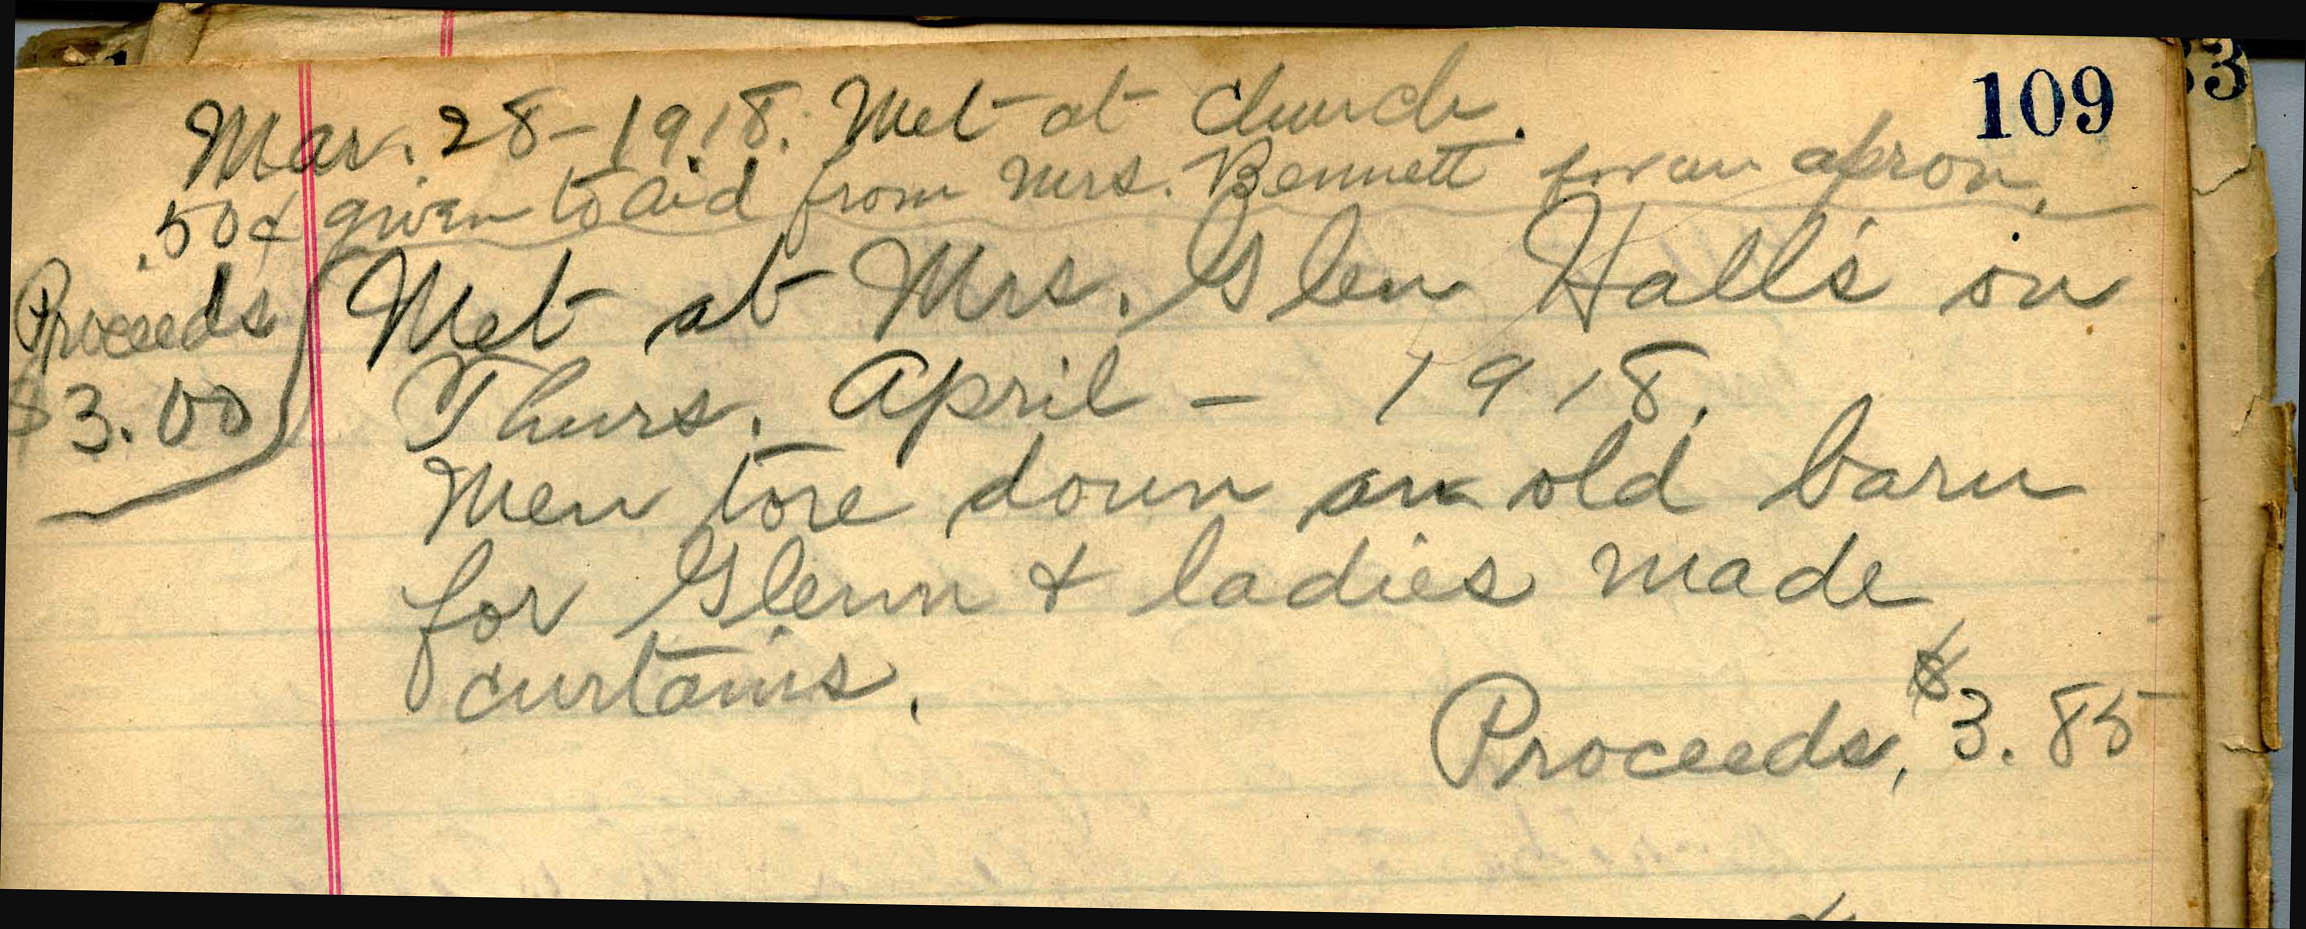 109
33
Mar. 28 - 1918. Met at church.
.50¢ given to aid from Mrs. Bennett for an apron.
Proceeds
$3.00
Met at Mrs. Glen Hall's on
Thurs. April - 1918.
Men tore down an old barn
for Glenn & ladies made
curtains.
Proceeds, $3.85